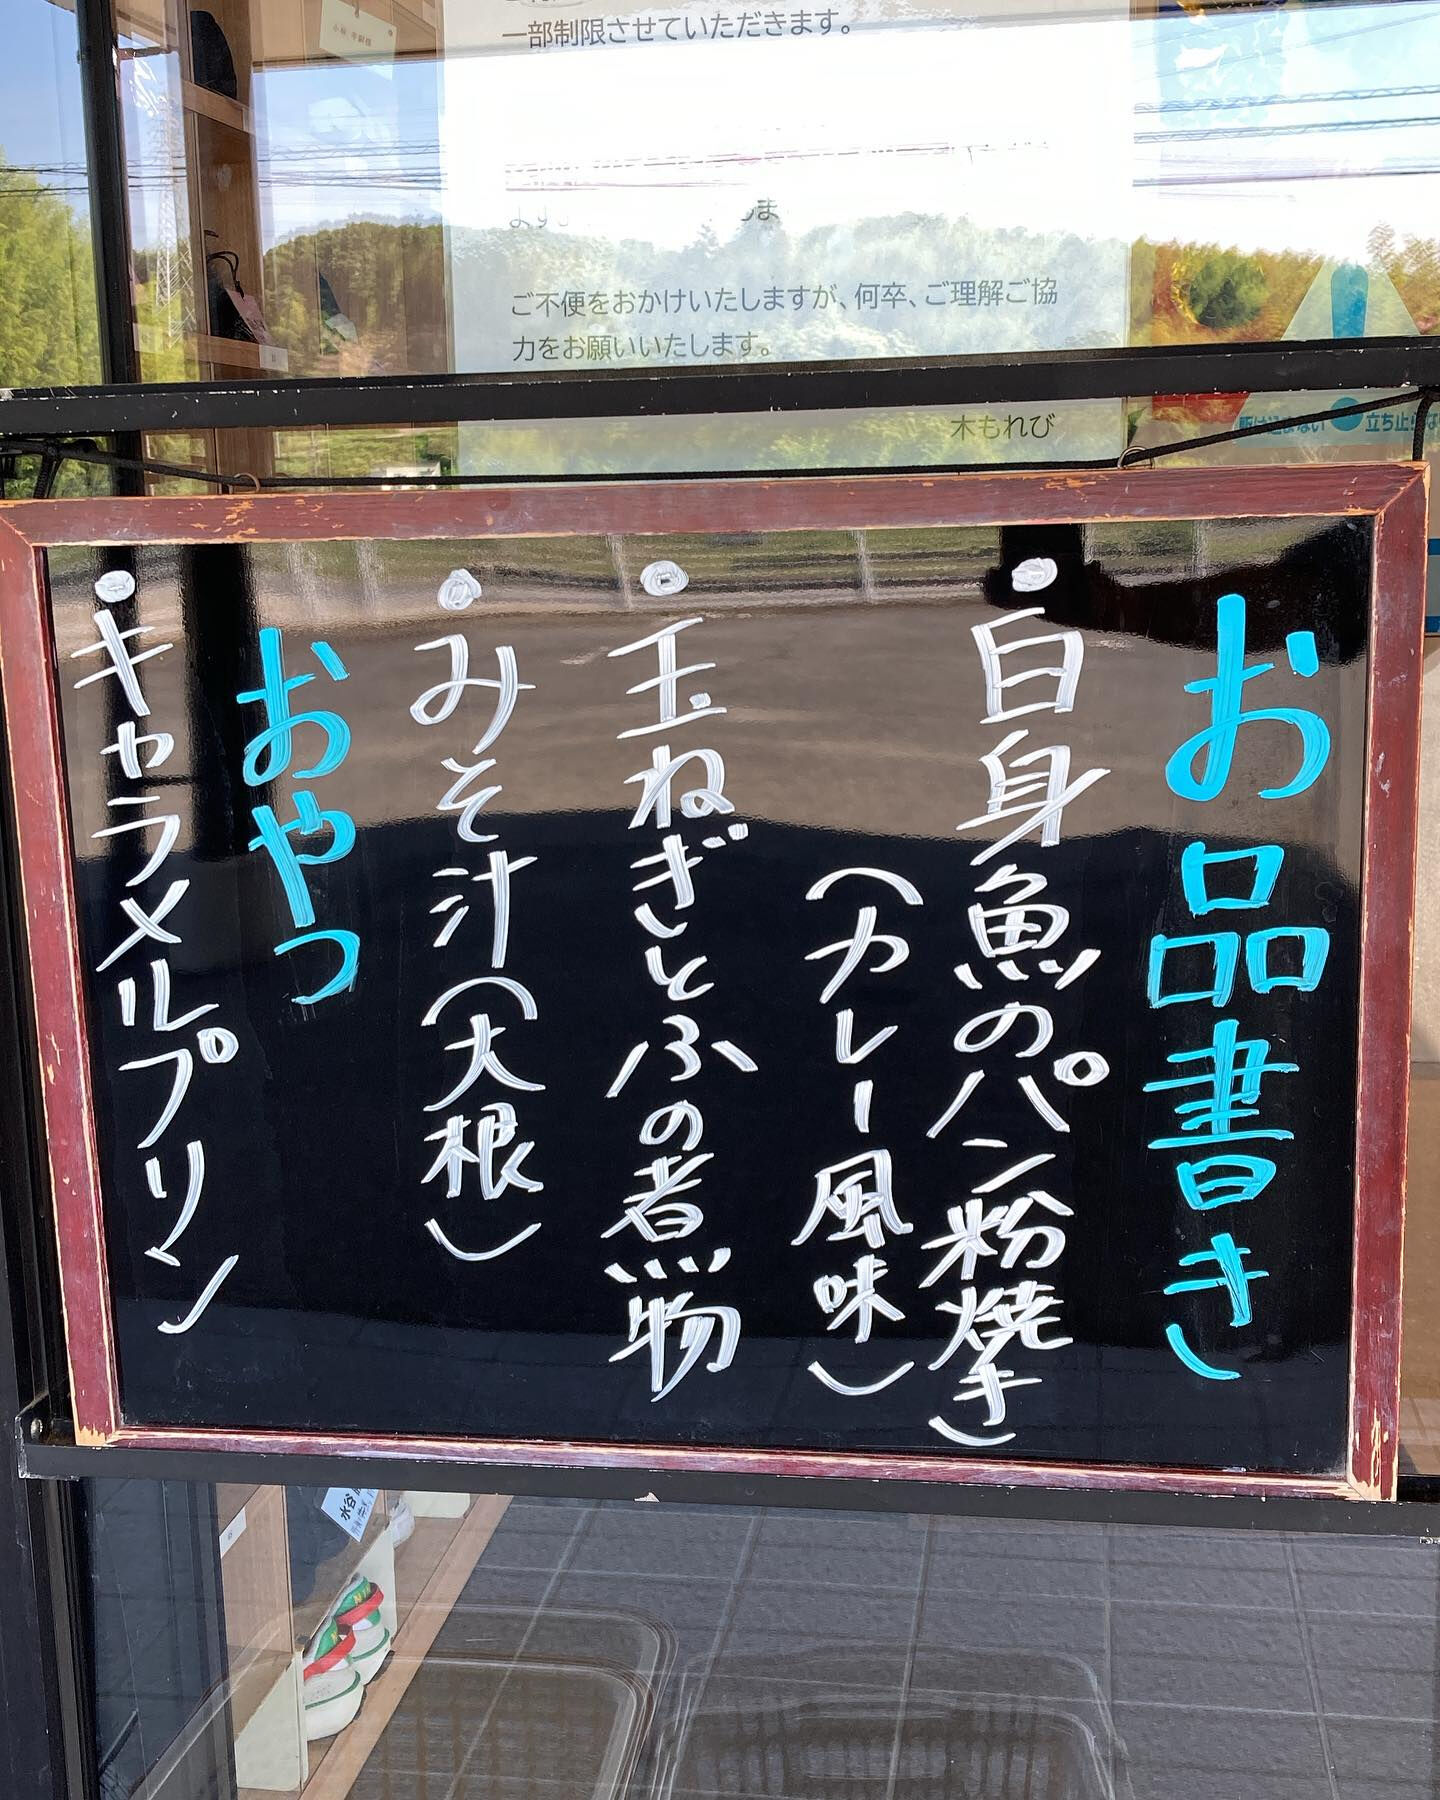 一部制限させていただきます。
ご不便をおかけいたしますが、何卒、ご理解ご協
力をお願いいたします。
木もれび
駆け込まない
立ち止らな
お品書き
・白身魚のパン粉焼き
(カレー風味)
・玉ねぎとふの煮物
・みそ汁(大根)
おやつ
・キャラメルプリン
水谷